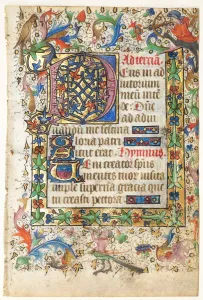 Ad terciā.
Deus in ad
iutorium
meū inten
de. Dñe
ad adiu
uandū me festina
Gloria patri
Sicut erat. Hymnus.
Veni creator spiri
tus mentes tuor visita
imple superna gracia que
tu creasti pectora